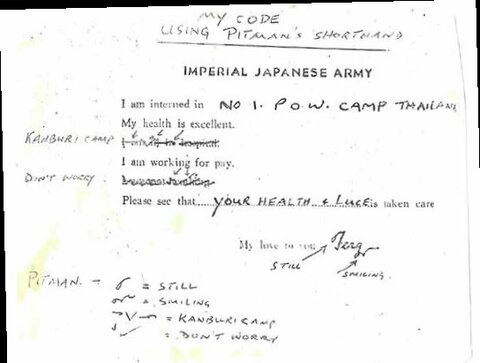 MY CODE
USING PITMAN'S SHORTHAND
IMPERIAL JAPANESE ARMY
I am interned in NO 1. P.O.W. CAMP THAILAND
My health is excellent.
KANBURI CAMP I am ill in hospital.
I am working for pay.
DON'T WORRY.
Please see that YOUR HEALTH & LUCE is taken care
My love to you Terry
STILL SMILING.
PITMAN. - = STILL
= SMILING
= KANBURI CAMP
= DON'T WORRY